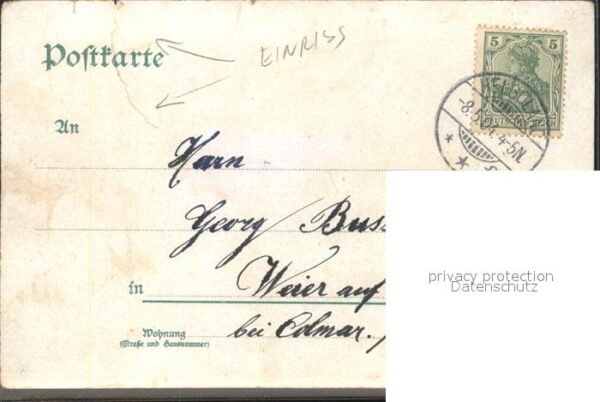 Postkarte
EINRISS
5 5
-8. 4-5N.
An
Herrn
Georg Buss
privacy protection
Datenschutz
in Weier auf
bei Colmar.
Wohnung
(Straße und Hausnummer)